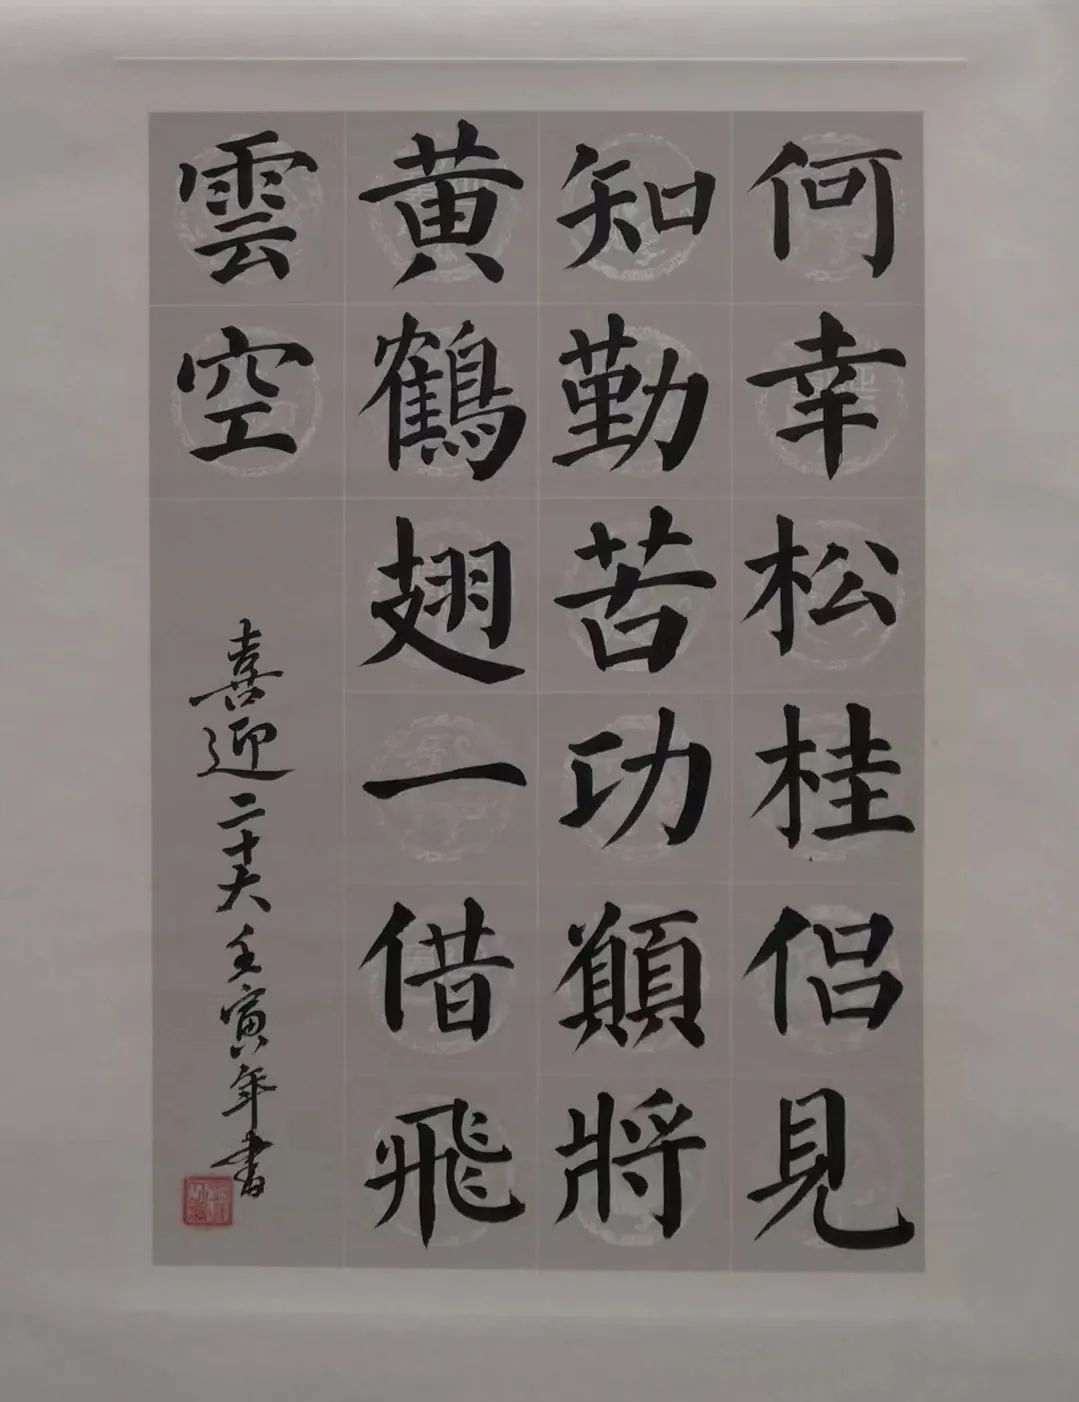 何幸松桂侣見
知勤苦功顚將
黄鶴翅一借飛
雲空
喜迎二十大壬寅年書